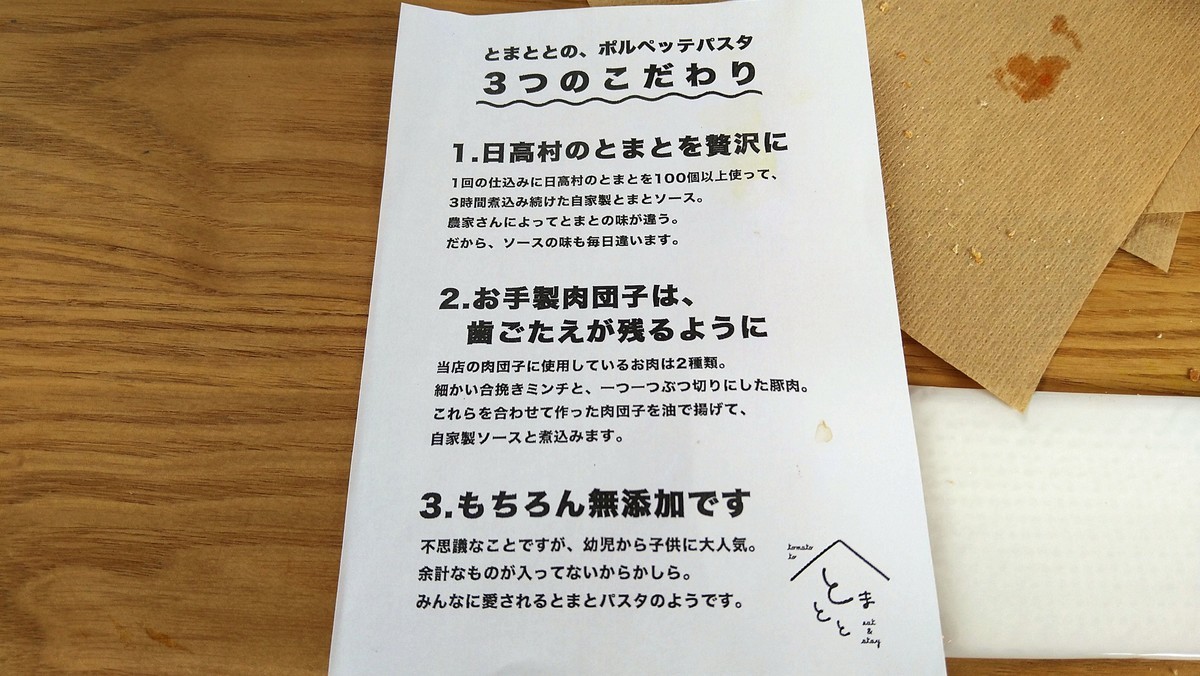 とまととの、ポルペッテパスタ
3つのこだわり
1.日高村のとまとを贅沢に
1回の仕込みに日高村のとまとを100個以上使って、
3時間煮込み続けた自家製とまとソース。
農家さんによってとまとの味が違う。
だから、ソースの味も毎日違います。
2.お手製肉団子は、
歯ごたえが残るように
当店の肉団子に使用しているお肉は2種類。
細かい合挽きミンチと、一つ一つぶつ切りにした豚肉。
これらを合わせて作った肉団子を油で揚げて、
自家製ソースと煮込みます。
3.もちろん無添加です
不思議なことですが、幼児から子供に大人気。
余計なものが入ってないからかしら。
みんなに愛されるとまとパスタのようです。
tomato
to
とま
とと
eat
&
stay